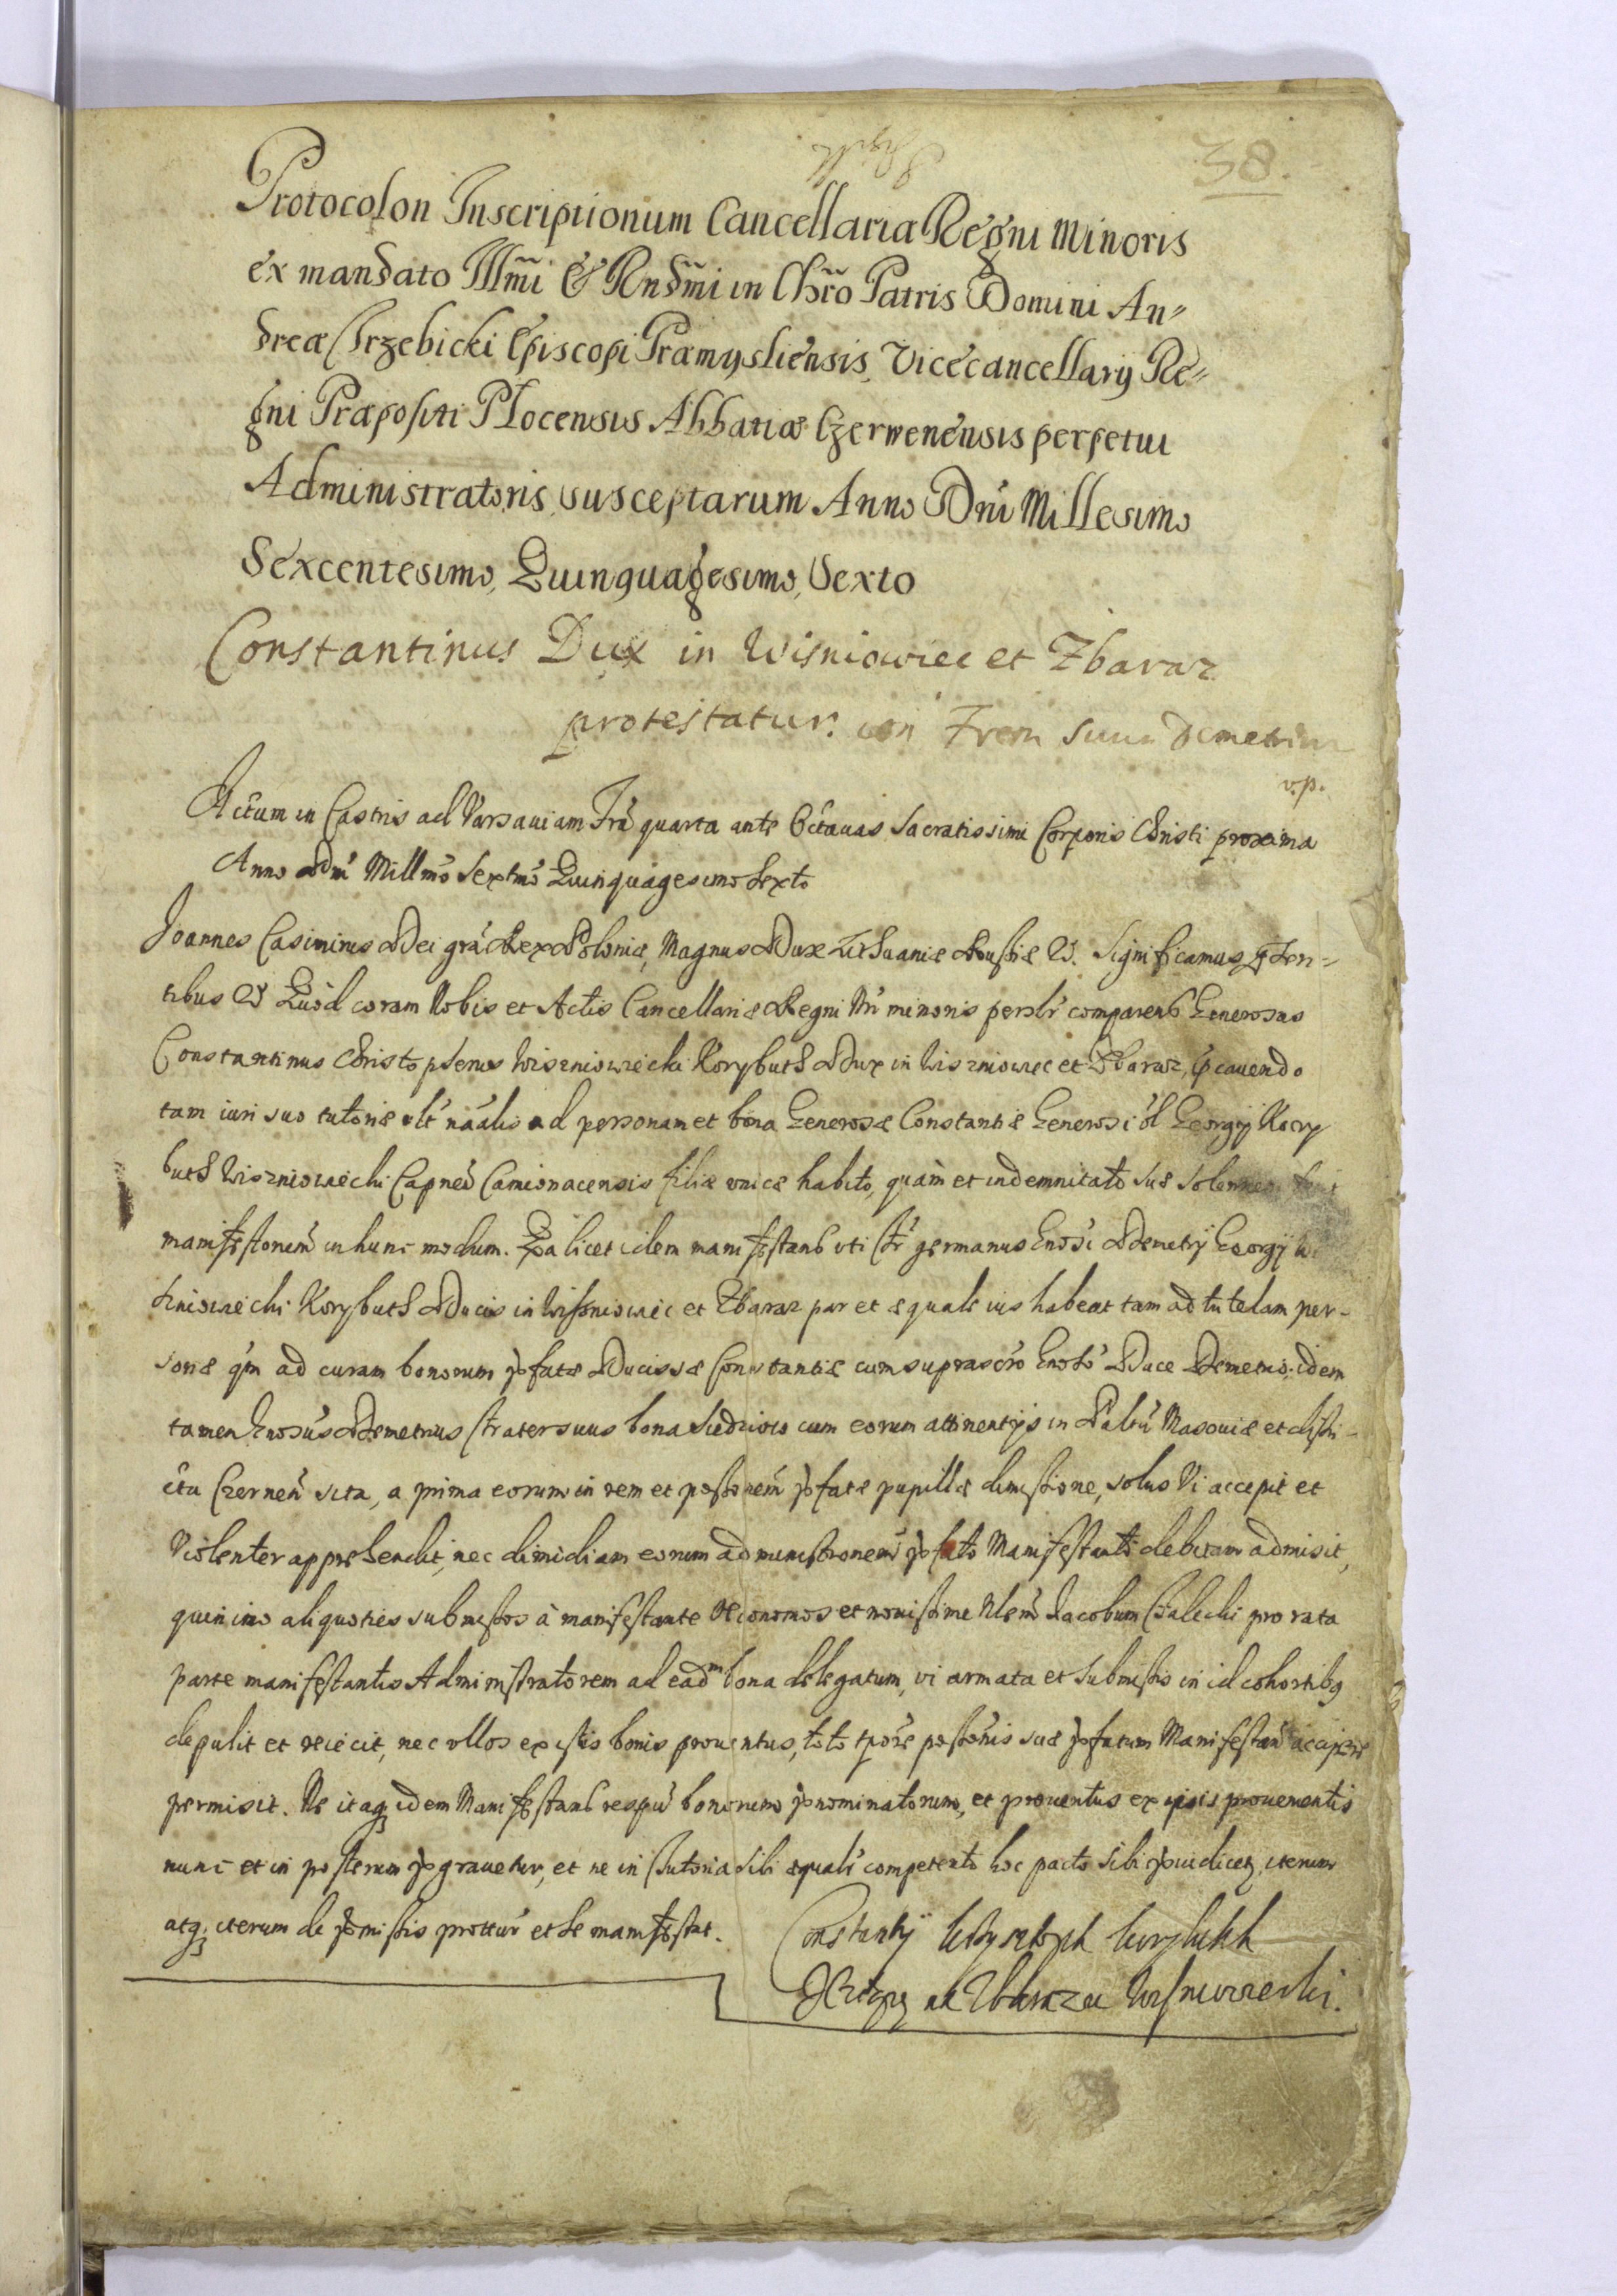 38.
Protocolon Inscriptionum Cancellaria Regni Minoris
ex mandato Illmi & Rndmi in Chro Patris Domini An=
dreæ Trzebicki Episcopi Præmysliensis, Vicecancellarij Re=
gni Præpositi Plocensis Abbatiæ Czerwenensis perpetui
Administratoris, susceptarum Anno Dni Millesimo
Sexcentesimo, Quinquagesimo, Sexto
Constantinus Dux in Wisniowiec et Zbaraz
protestatur. con Frem suum Demetrium
v.p.
Actum in Castris ad Varsauiam Fra quarta ante Octauas Sacratissimi Corporis Christi proxima
Anno Dni Millmo Sextmo Quinquagesimo Sexto
Joannes Casimirus Dei gra Rex Poloniæ, Magnus Dux Lithuaniæ Russiæ &. Significamus pnten=
tibus & Quod coram Nobis et Actis Cancellariæ Regni Nri minoris persolr comparens Generosus
Constantinus Christophorus Wiszniowiecki Korybuth Dux in Wiszniowiec et Zbaraz, pcauendo
tam iuri suo tutoriæ olt naalis ad personam et bona Generosæ Constantiæ Generosi ol Georgij Kory
buth Wiszniowiecki Capnei Camionacensis filiæ vnicæ habito, quam et indemnitati suæ solennem
manifestonem in hunc modum. Quia licet idem manifestans vti fr germanus Gnosi Demetrij Georgij Wi
szniowiecki Korybuth Ducis in Wiszniowiec et Zbaraz par et æquale ius habeat tam ad tutelam per-
sonæ qm ad curam bonorum pfatæ Ducissæ Constantiæ cum suprascro Gnoso Duce Demetrio, idem
tamen Gnosus Demetrius frater suus bona cum eorum attinentijs in Paltu Masouiæ et distri-
ctu Czernen sita, a prima eorum in rem et possionem pfatæ pupillæ dimissione, solus Vi accepit et
Violenter apprehendit, nec dimidiam eorum administronem pfato Manifestanti debitam admisit,
quin imo aliquoties submissos à manifestante Oeconomos et nouissime Nlem Jacobum Galecki pro rata
parte manifestantis Administratorem ad eadm bona delegatum, vi armata et submissis in id cohortibq
depulit et reiecit, nec vllos ex istis bonis prouentus, toto tpore possionis suæ pfatum Manifestan accipere
permisit. Ne itaq idem Manifestans respu bonorum pnominatorum, et prouentus ex ipsis prouenientis
nunc et in posterum pgrauetur, et ne in tutoria sibi æquali competenti hoc pacto sibi piudicet, iterum
atq iterum de pmissis prottur et se manifestat.
Constanty Krzysztoph Korybuth
Xiążę na Zbarazu Wiszniowiecki.